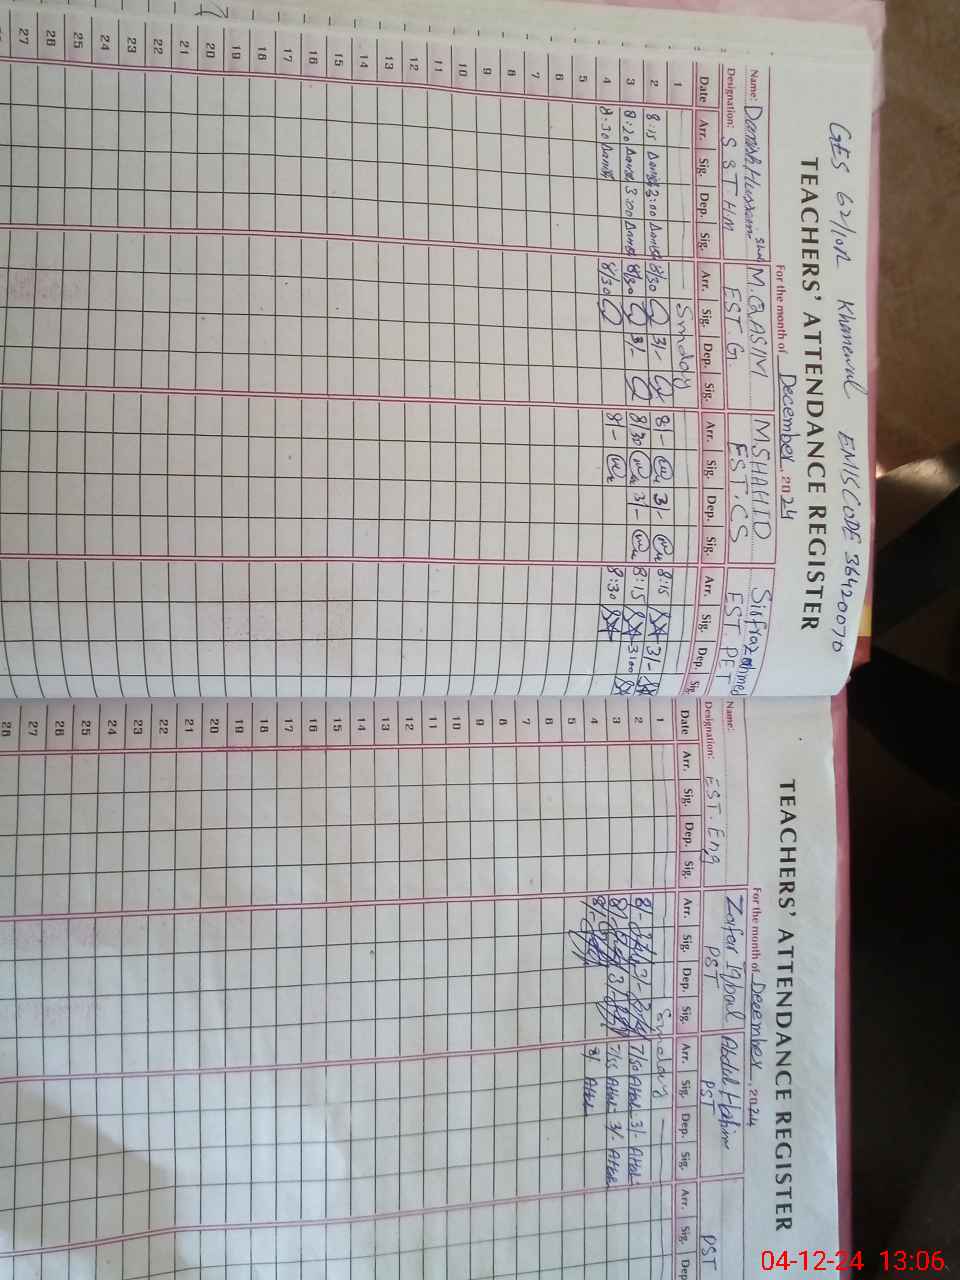 GES 62/10R Khanewal EMISCODE 36420070
TEACHERS' ATTENDANCE REGISTER
For the month of December, 2024
Name: Danish Hussain M. QASIM M. SHAHID Sirfraz Ahmed
Designation: S ST. HM EST. G. EST. CS EST. PET
Date Arr. Sig. Dep. Sig. Arr. Sig. Dep. Sig. Arr. Sig. Dep. Sig. Arr. Sig. Dep. Sig.
1 Sunday
2 8:15 Danish 3:00 Danish 8/30 3/- 8/- 3/- 8:15 3/-
3 8:20 Danish 3:00 Danish 8/30 3/- 8/30 3/- 8:15 3:00
4 8:30 Danish 8/30 8/- 8:30
5
6
7
8
9
10
11
12
13
14
15
16
17
18
19
20
21
22
23
24
25
26
27
TEACHERS' ATTENDANCE REGISTER
For the month of December, 2024
Name: Zafar Iqbal Abdul Hakim
Designation: EST. Eng PST PST PST
Date Arr. Sig. Dep. Sig. Arr. Sig. Dep. Sig. Arr. Sig. Dep. Sig. Arr. Sig. Dep.
1 Sunday
2 8/- 3/- 7/50 3/-
3 8/- 3/- 7/55 3/-
4 8/- 8/
5
6
7
8
9
10
11
12
13
14
15
16
17
18
19
20
21
22
23
24
25
26
27
28
04-12-24 13:06